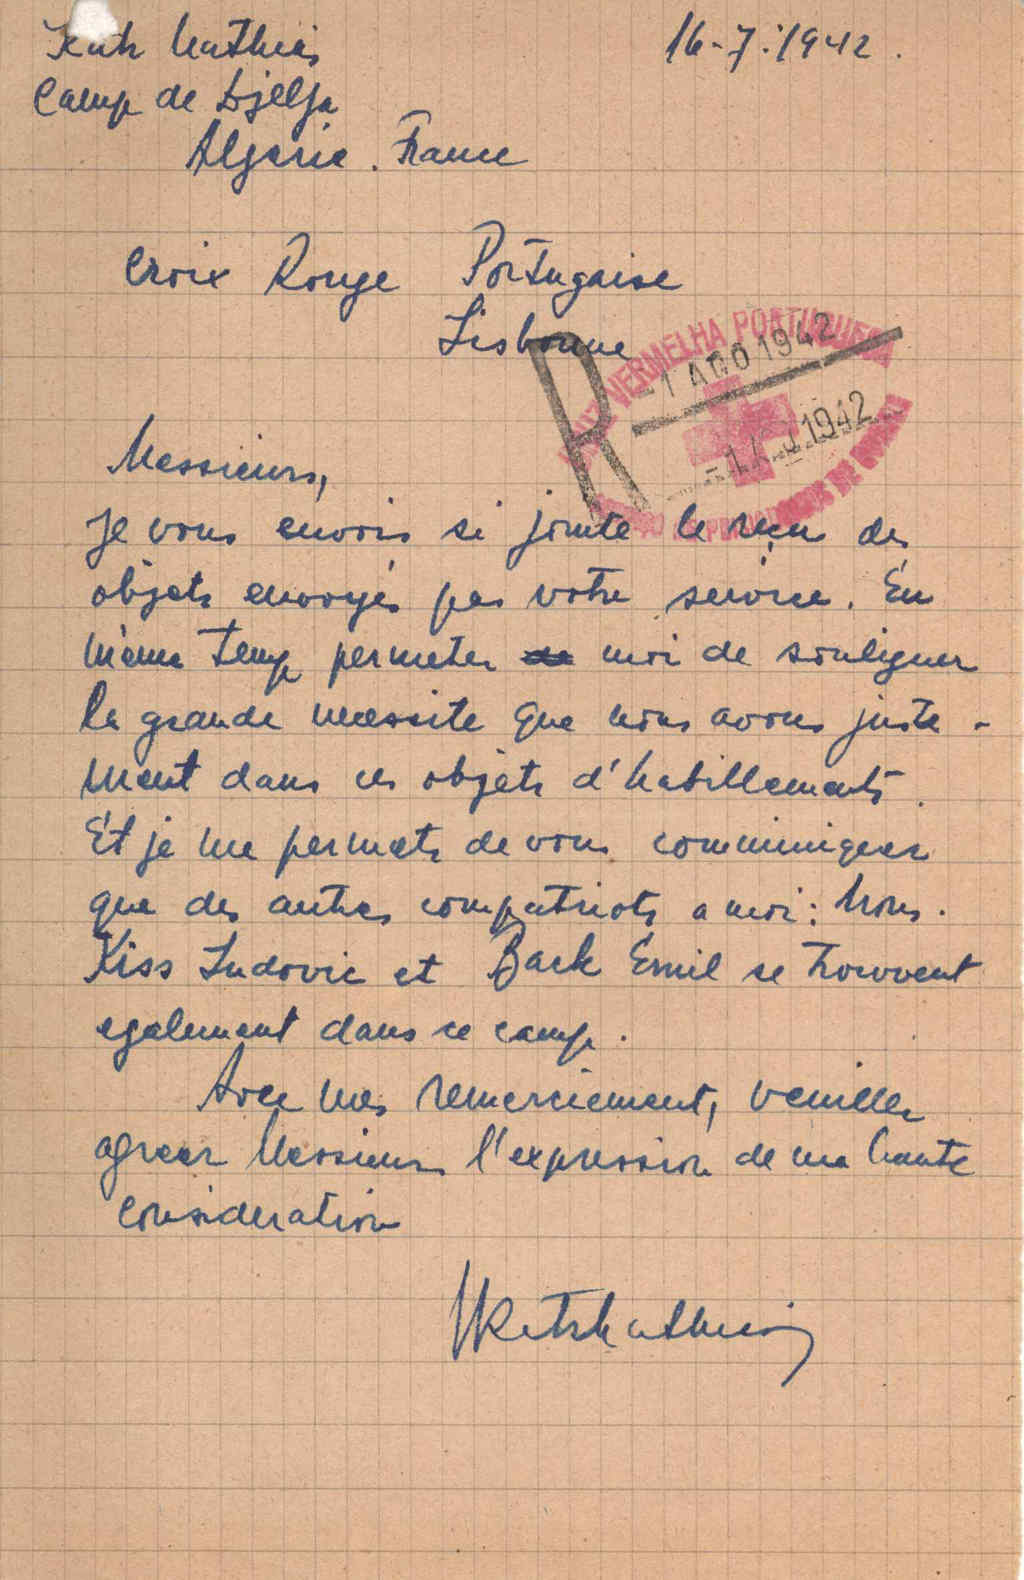 Katz Mathias 16-7-1942.
Camp de Djelfa
Algerie. France
Croix Rouge Portugaise
Lisbonne
CRUZ VERMELHA PORTUGUESA
R -1 AGO 1942
1942
DE GUERRA
Messieurs,
Je vous envois si jointe le reçu des
objets envoyés par votre service. En
même temp permeter moi de souligner
la grande necessite que nous avons juste-
ment dans ces objets d'habillements.
Et je me permets de vous comminiqeer
que des autres compatriots a moi: Mons.
Kiss Ludovic et Back Emil se trouvent
egalement dans ce camp.
Avec mes remerciement, veuillez
agreer Messieurs l'expression de ma haute
consideration
Katz Mathias